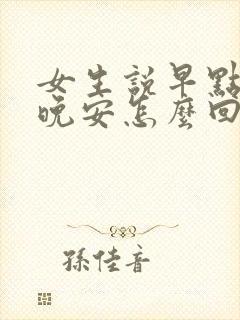 女生說早點
晚安怎麼回
孫佳音